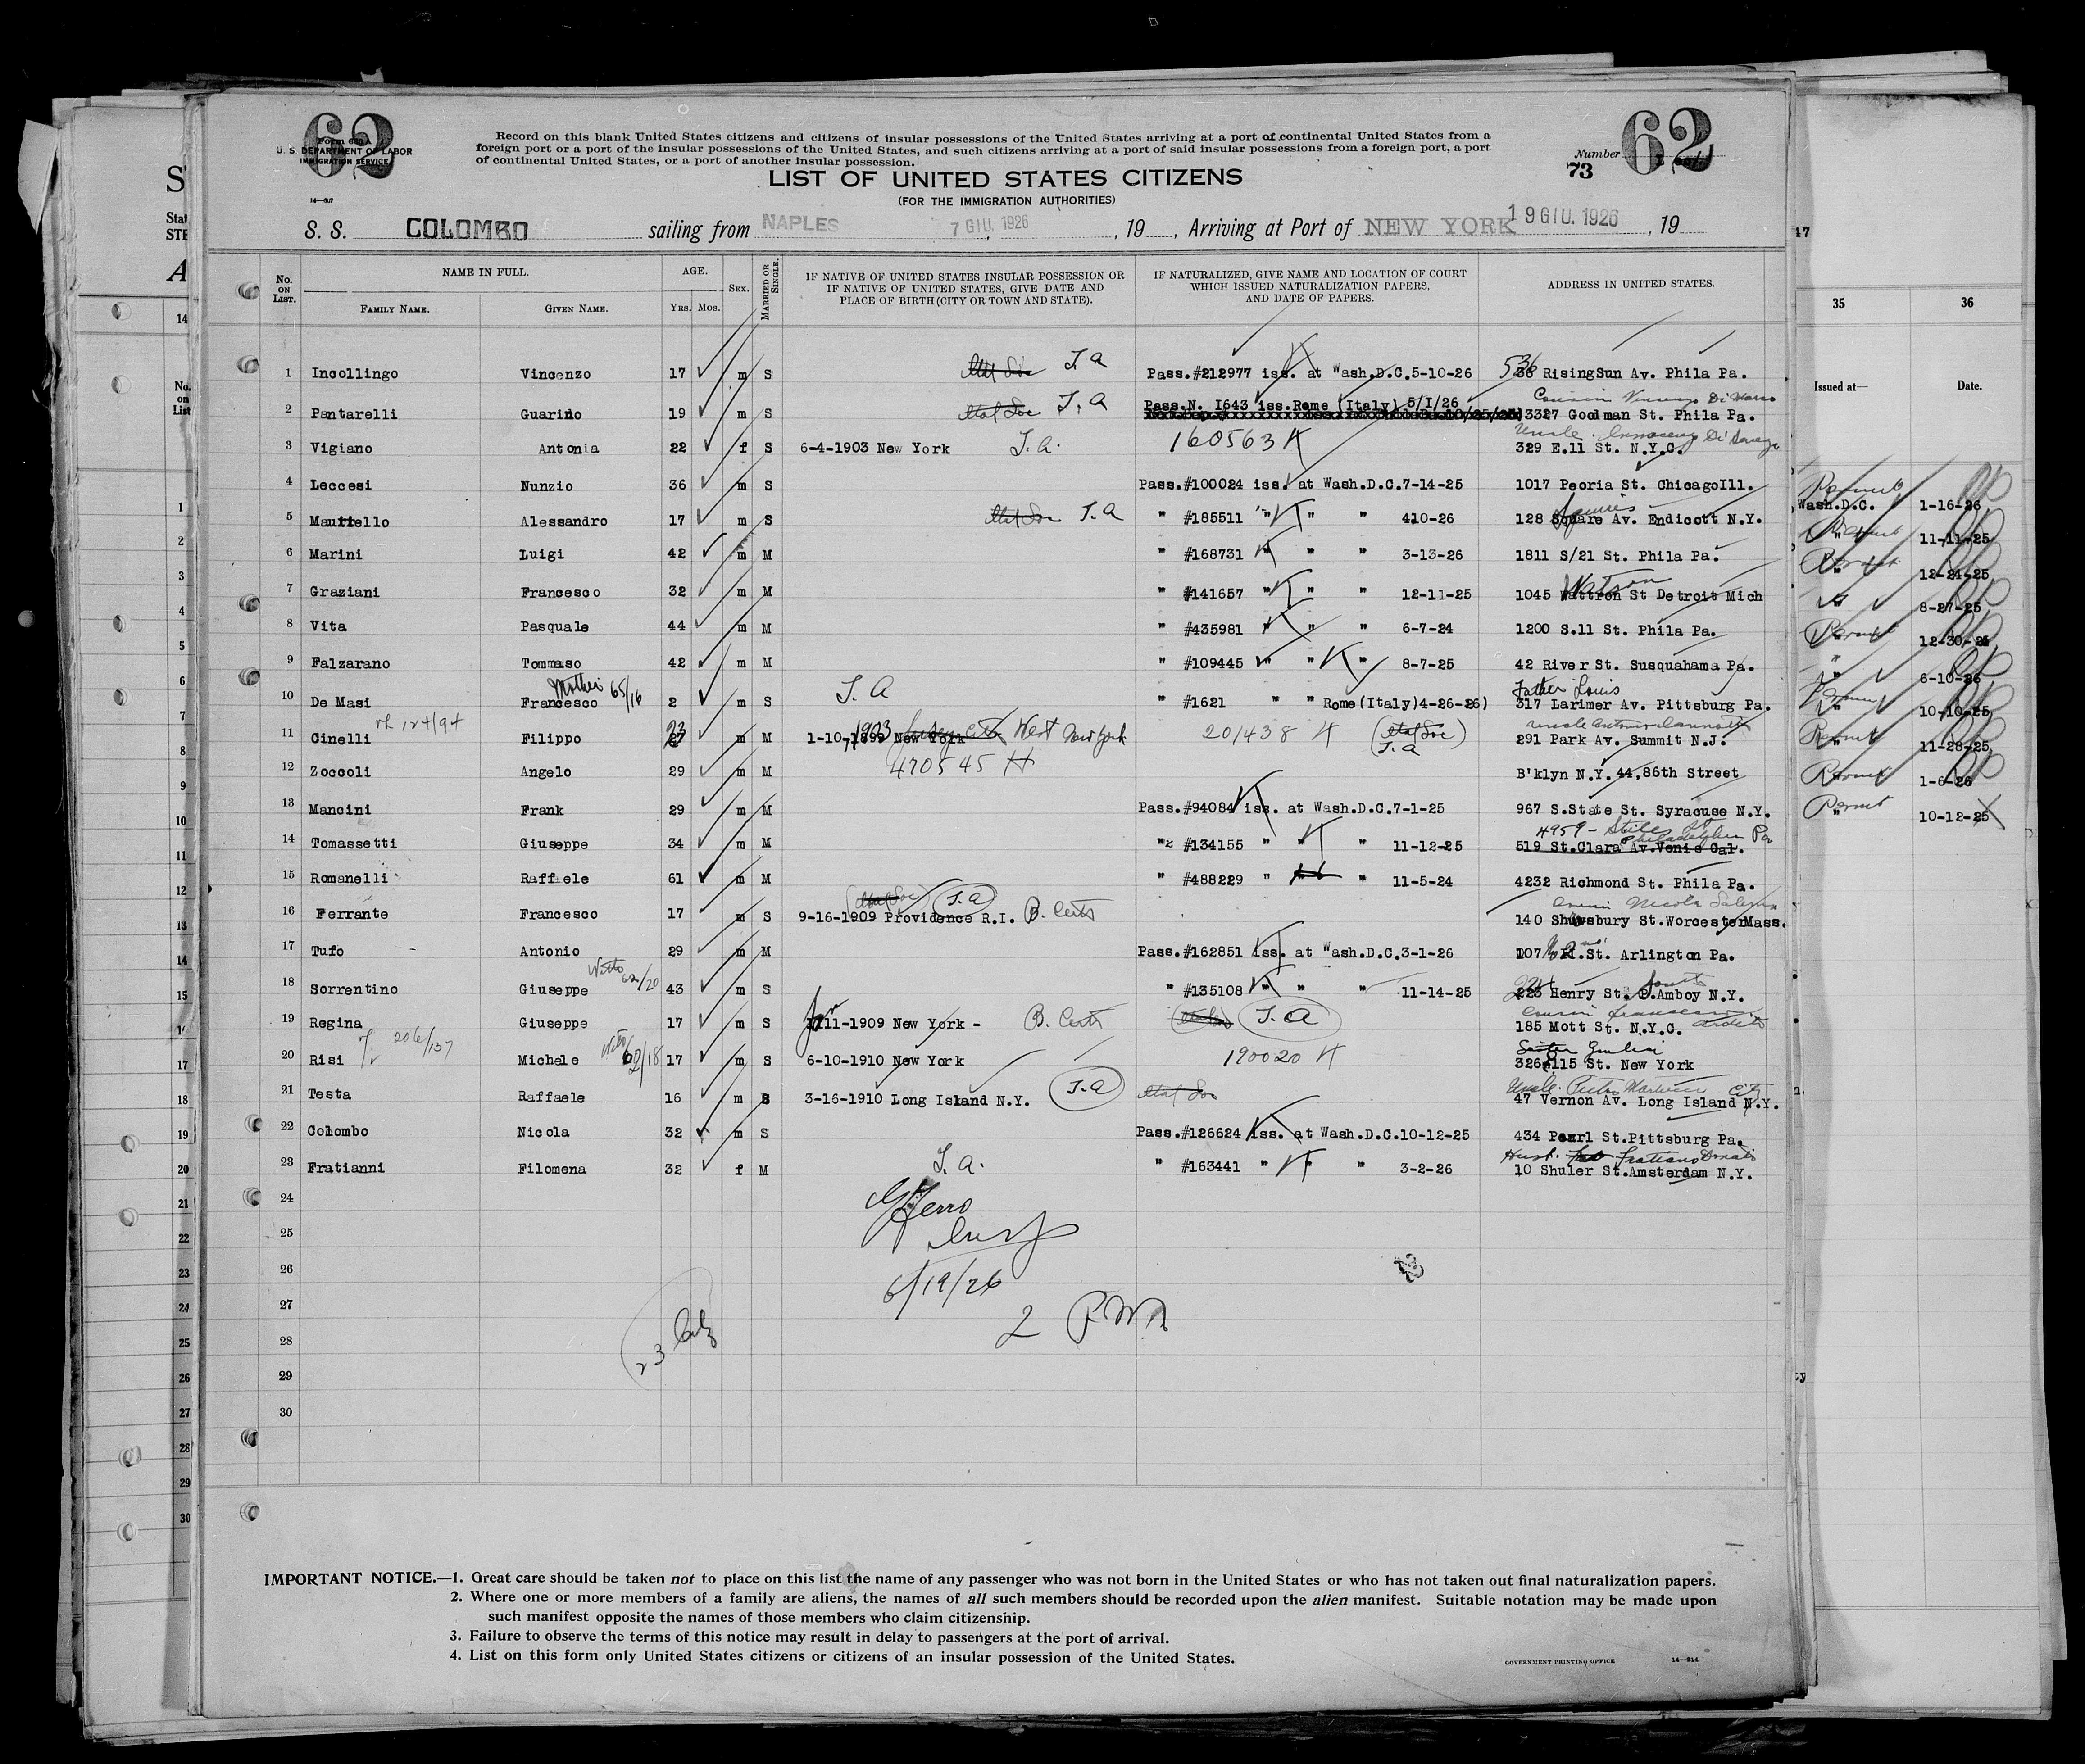 62
Form 630A
U. S. DEPARTMENT OF LABOR
IMMIGRATION SERVICE
14—307
Record on this blank United States citizens and citizens of insular possessions of the United States arriving at a port of continental United States from a
foreign port or a port of the insular possessions of the United States, and such citizens arriving at a port of said insular possessions from a foreign port, a port
of continental United States, or a port of another insular possession.
Number
62
73
LIST OF UNITED STATES CITIZENS
(FOR THE IMMIGRATION AUTHORITIES)
S. S. COLOMBO sailing from NAPLES 7 GIU. 1926, 19 , Arriving at Port of NEW YORK 19 GIU. 1926, 19
No. ON LIST.
NAME IN FULL.
FAMILY NAME.
GIVEN NAME.
AGE.
YRS. MOS.
SEX.
MARRIED OR SINGLE.
IF NATIVE OF UNITED STATES INSULAR POSSESSION OR
IF NATIVE OF UNITED STATES, GIVE DATE AND
PLACE OF BIRTH (CITY OR TOWN AND STATE).
IF NATURALIZED, GIVE NAME AND LOCATION OF COURT
WHICH ISSUED NATURALIZATION PAPERS,
AND DATE OF PAPERS.
ADDRESS IN UNITED STATES.
1 Incollingo Vincenzo 17 m S Ital Soc I.A Pass.#212977 iss. at Wash.D.C.5-10-26 536 RisingSun Av. Phila Pa.
2 Pantarelli Guarino 19 m S Ital Soc I.A Pass.N. I643 iss.Rome (Italy) 5/I/26 Cousin
3327 Goodman St. Phila Pa.
Uncle
3 Vigiano Antonia 22 f S 6-4-1903 New York I.A. 160563 K 329 E.11 St. N.Y.C.
4 Leccesi Nunzio 36 m S Pass.#100024 iss. at Wash.D.C.7-14-25 1017 Peoria St. ChicagoIll.
5 Alessandro 17 m S Ital Soc I.A " #185511 " " " 4-10-26 128 Square Av. Endicott N.Y.
Squires
6 Marini Luigi 42 m M " #168731 " " 3-13-26 1811 S/21 St. Phila Pa.
7 Graziani Francesco 32 m M " #141657 " " " 12-11-25 1045 Wattron St Detroit Mich
Watson
8 Vita Pasquale 44 m M " #435981 " " " 6-7-24 1200 S.11 St. Phila Pa.
9 Falzarano Tommaso 42 m M " #109445 " " " 8-7-25 42 River St. Susquahama Pa.
Mother 65/16
Father Louis
10 De Masi Francesco 2 m S I.A " #1621 " " Rome(Italy)4-26-26) 317 Larimer Av. Pittsburg Pa.
124/94
Uncle
11 Cinelli Filippo 23 m M 1-10-1899 New York 1903 West New York 201438 K (Ital Soc) I.A 291 Park Av. Summit N.J.
470545 H
12 Zoccoli Angelo 29 m M B'klyn N.Y. 44,86th Street
13 Mancini Frank 29 m M Pass.#94084 iss. at Wash.D.C.7-1-25 967 S.State St. Syracuse N.Y.
4959 - Stiles St Philadelphia Pa
14 Tomassetti Giuseppe 34 m M " #134155 " " " 11-12-25 519 St.Clara Av.Venis Cal.
15 Romanelli Raffaele 61 m M " #488229 " " 11-5-24 4232 Richmond St. Phila Pa.
(Ital Soc) I.A
Cousin Nicola
16 Ferrante Francesco 17 m S 9-16-1909 Providence R.I. B. Certs 140 Shrewsbury St.WorcesterMass.
17 Tufo Antonio 29 m M Pass.#162851 iss. at Wash.D.C.3-1-26 107 St. Arlington Pa.
62/20
18 Sorrentino Giuseppe 43 m S " #135108 " " " 11-14-25 Henry St. P.Amboy N.Y.
South
19 Regina Giuseppe 17 m S 11-1909 New York - B. Certs I.A 185 Mott St. N.Y.C.
206/137
62/18
20 Risi Michele 17 m S 6-10-1910 New York 190020 K 326 115 St. New York
Uncle
21 Testa Raffaele 16 m S 3-16-1910 Long Island N.Y. I.A Ital Soc 47 Vernon Av. Long Island City N.Y.
22 Colombo Nicola 32 m S Pass.#126624 iss. at Wash.D.C.10-12-25 434 Pearl St.Pittsburg Pa.
Husb. Fratianni Donato
23 Fratianni Filomena 32 f M I.A. " #163441 " " " 3-2-26 10 Shuler St.Amsterdam N.Y.
24
25
26
27
28
29
30
6/19/26
IMPORTANT NOTICE.—1. Great care should be taken not to place on this list the name of any passenger who was not born in the United States or who has not taken out final naturalization papers.
2. Where one or more members of a family are aliens, the names of all such members should be recorded upon the alien manifest. Suitable notation may be made upon
such manifest opposite the names of those members who claim citizenship.
3. Failure to observe the terms of this notice may result in delay to passengers at the port of arrival.
4. List on this form only United States citizens or citizens of an insular possession of the United States.
GOVERNMENT PRINTING OFFICE
14—314
35 36
Issued at— Date.
Permit
Wash.D.C. 1-16-26
" 11-11-25
" 12-24-25
" 8-27-25
" 12-30-25
" 6-10-26
" 10-10-25
" 11-28-25
1-6-26
" 10-12-25